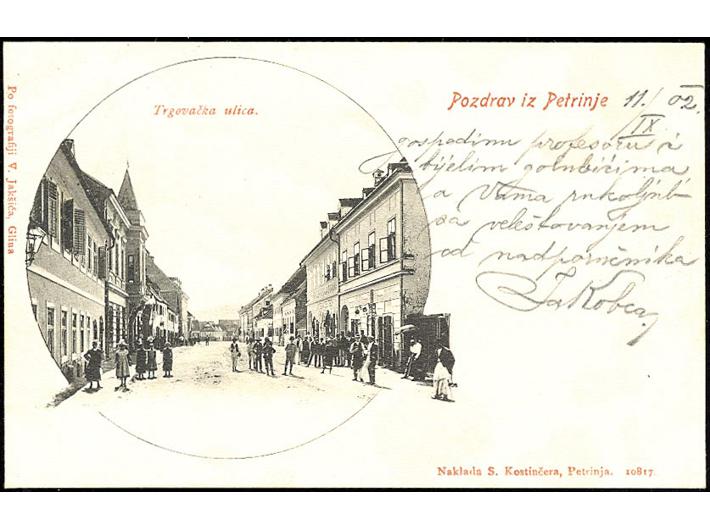 Trgovačka ulica.
Pozdrav iz Petrinje 11./IX 02.
gospodinu profesoru i
bijelim golubićima
a Vama rukoljub
sa veleštovanjem
od nadporučnika
Po fotografiji V. Jakšića, Glina
Naklada S. Kostinčera, Petrinja. 10817